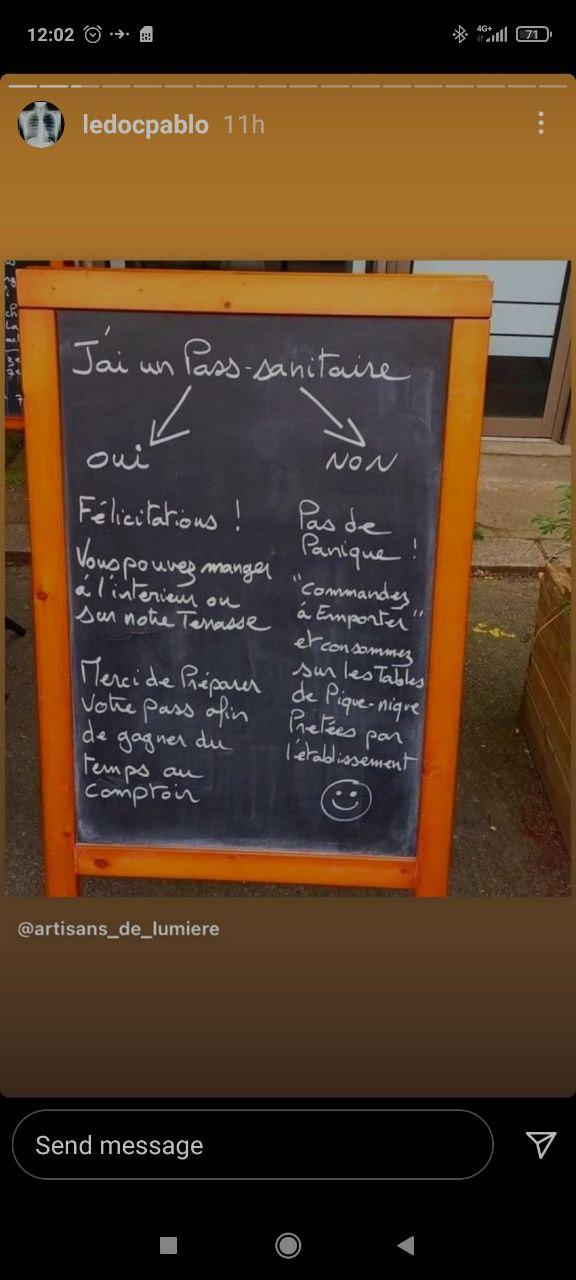 12:02
4G+
71
ledocpablo 11h
J'ai un Pass-sanitaire
oui
NON
Félicitations !
Vous pouvez manger
à l'interieur ou
sur notre Terrasse
Merci de Préparer
votre pass afin
de gagner du
temps au
comptoir
Pas de
Panique !
"commandez
à Emporter"
et consommez
sur les Tables
de Pique-nique
Pretées par
l'établissement
@artisans_de_lumiere
Send message